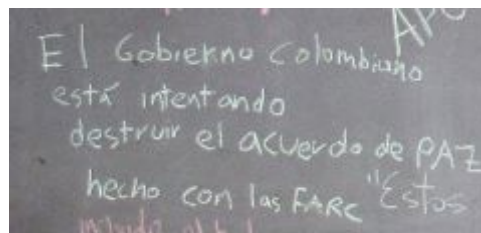 El Gobierno Colombiano
está intentando
destruir el acuerdo de PAZ
hecho con las FARC "Estos